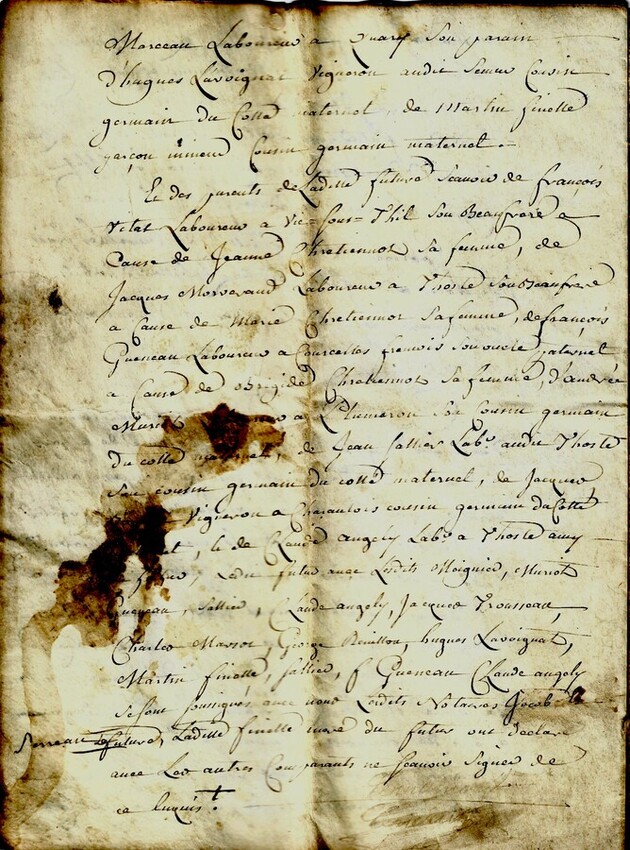 Marceau Laboureur a Quarÿ son parain
d'hugues Lavoignat Vigneron audit Semur Cousin
germain du Cotté maternel, de Martin finelle
garçon mineur Cousin germain maternel.
Et des parents de Laditte future Scavoir de françois
Vitat Laboureur a Vic=sous=Thil son Beaufrere a
Cause de Jeanne Chretiennot sa femme, de
Jacques Morverand Laboureur a Thoste son Beaufrere
a Cause de Marie Chretiennot sa femme, de françois
Gueneau Laboureur a Courcelles fremois son oncle paternel
a Cause de Brigide Chretiennot sa femme, d'andrée
Muriot a Plumeron son Cousin germain
du cotté maternel, de Jean sallier Lab.r audit Thoste
son cousin germain du cotté maternel, de Jacques
Vigneron a Charantois cousin germain du Cotté
, et de Claude angely Lab.r a Thoste amy
, Ledit futur avec Lesdits Moignier, Muriot
Gueneau, Sallier, Claude angely, Jacques Trousseau,
Charles Massot, George Bouillou, hugues Lavoignat,
Martin finelle, Sallier, f Gueneau Claude angely
se sont soussignés avec nous Lesdits Notaires
future, Laditte finelle mere du futur ont declaré
avec Les autres Comparants ne scavoir signer de
ce Enquis.